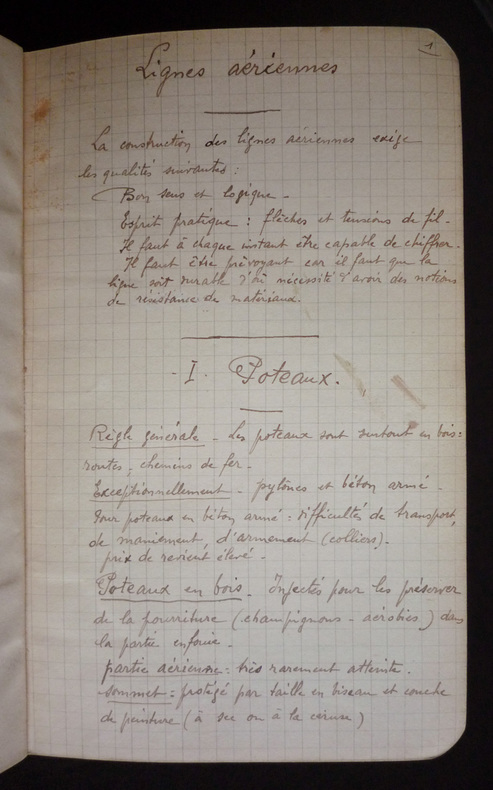 1
Lignes aériennes
La construction des lignes aériennes exige
les qualités suivantes :
Bon sens et logique -
Esprit pratique : flèches et tensions de fil -
Il faut à chaque instant être capable de chiffrer.
Il faut être prévoyant car il faut que la
ligne soit durable d'où nécessité d'avoir des notions
de résistance de matériaux.
- I. Poteaux.
Règle générale - Les poteaux sont surtout en bois :
routes, chemins de fer -
Exceptionnellement - pylônes et béton armé -
Pour poteaux en béton armé : difficultés de transport,
de maniement, d'armement (colliers) -
prix de revient élevé -
Poteaux en bois. Injectés pour les préserver
de la pourriture (champignons - aérobies) dans
la partie enfouie -
partie aérienne : très rarement atteinte.
sommet : protégé par taille en biseau et couche
de peinture (à sec ou à la céruse)